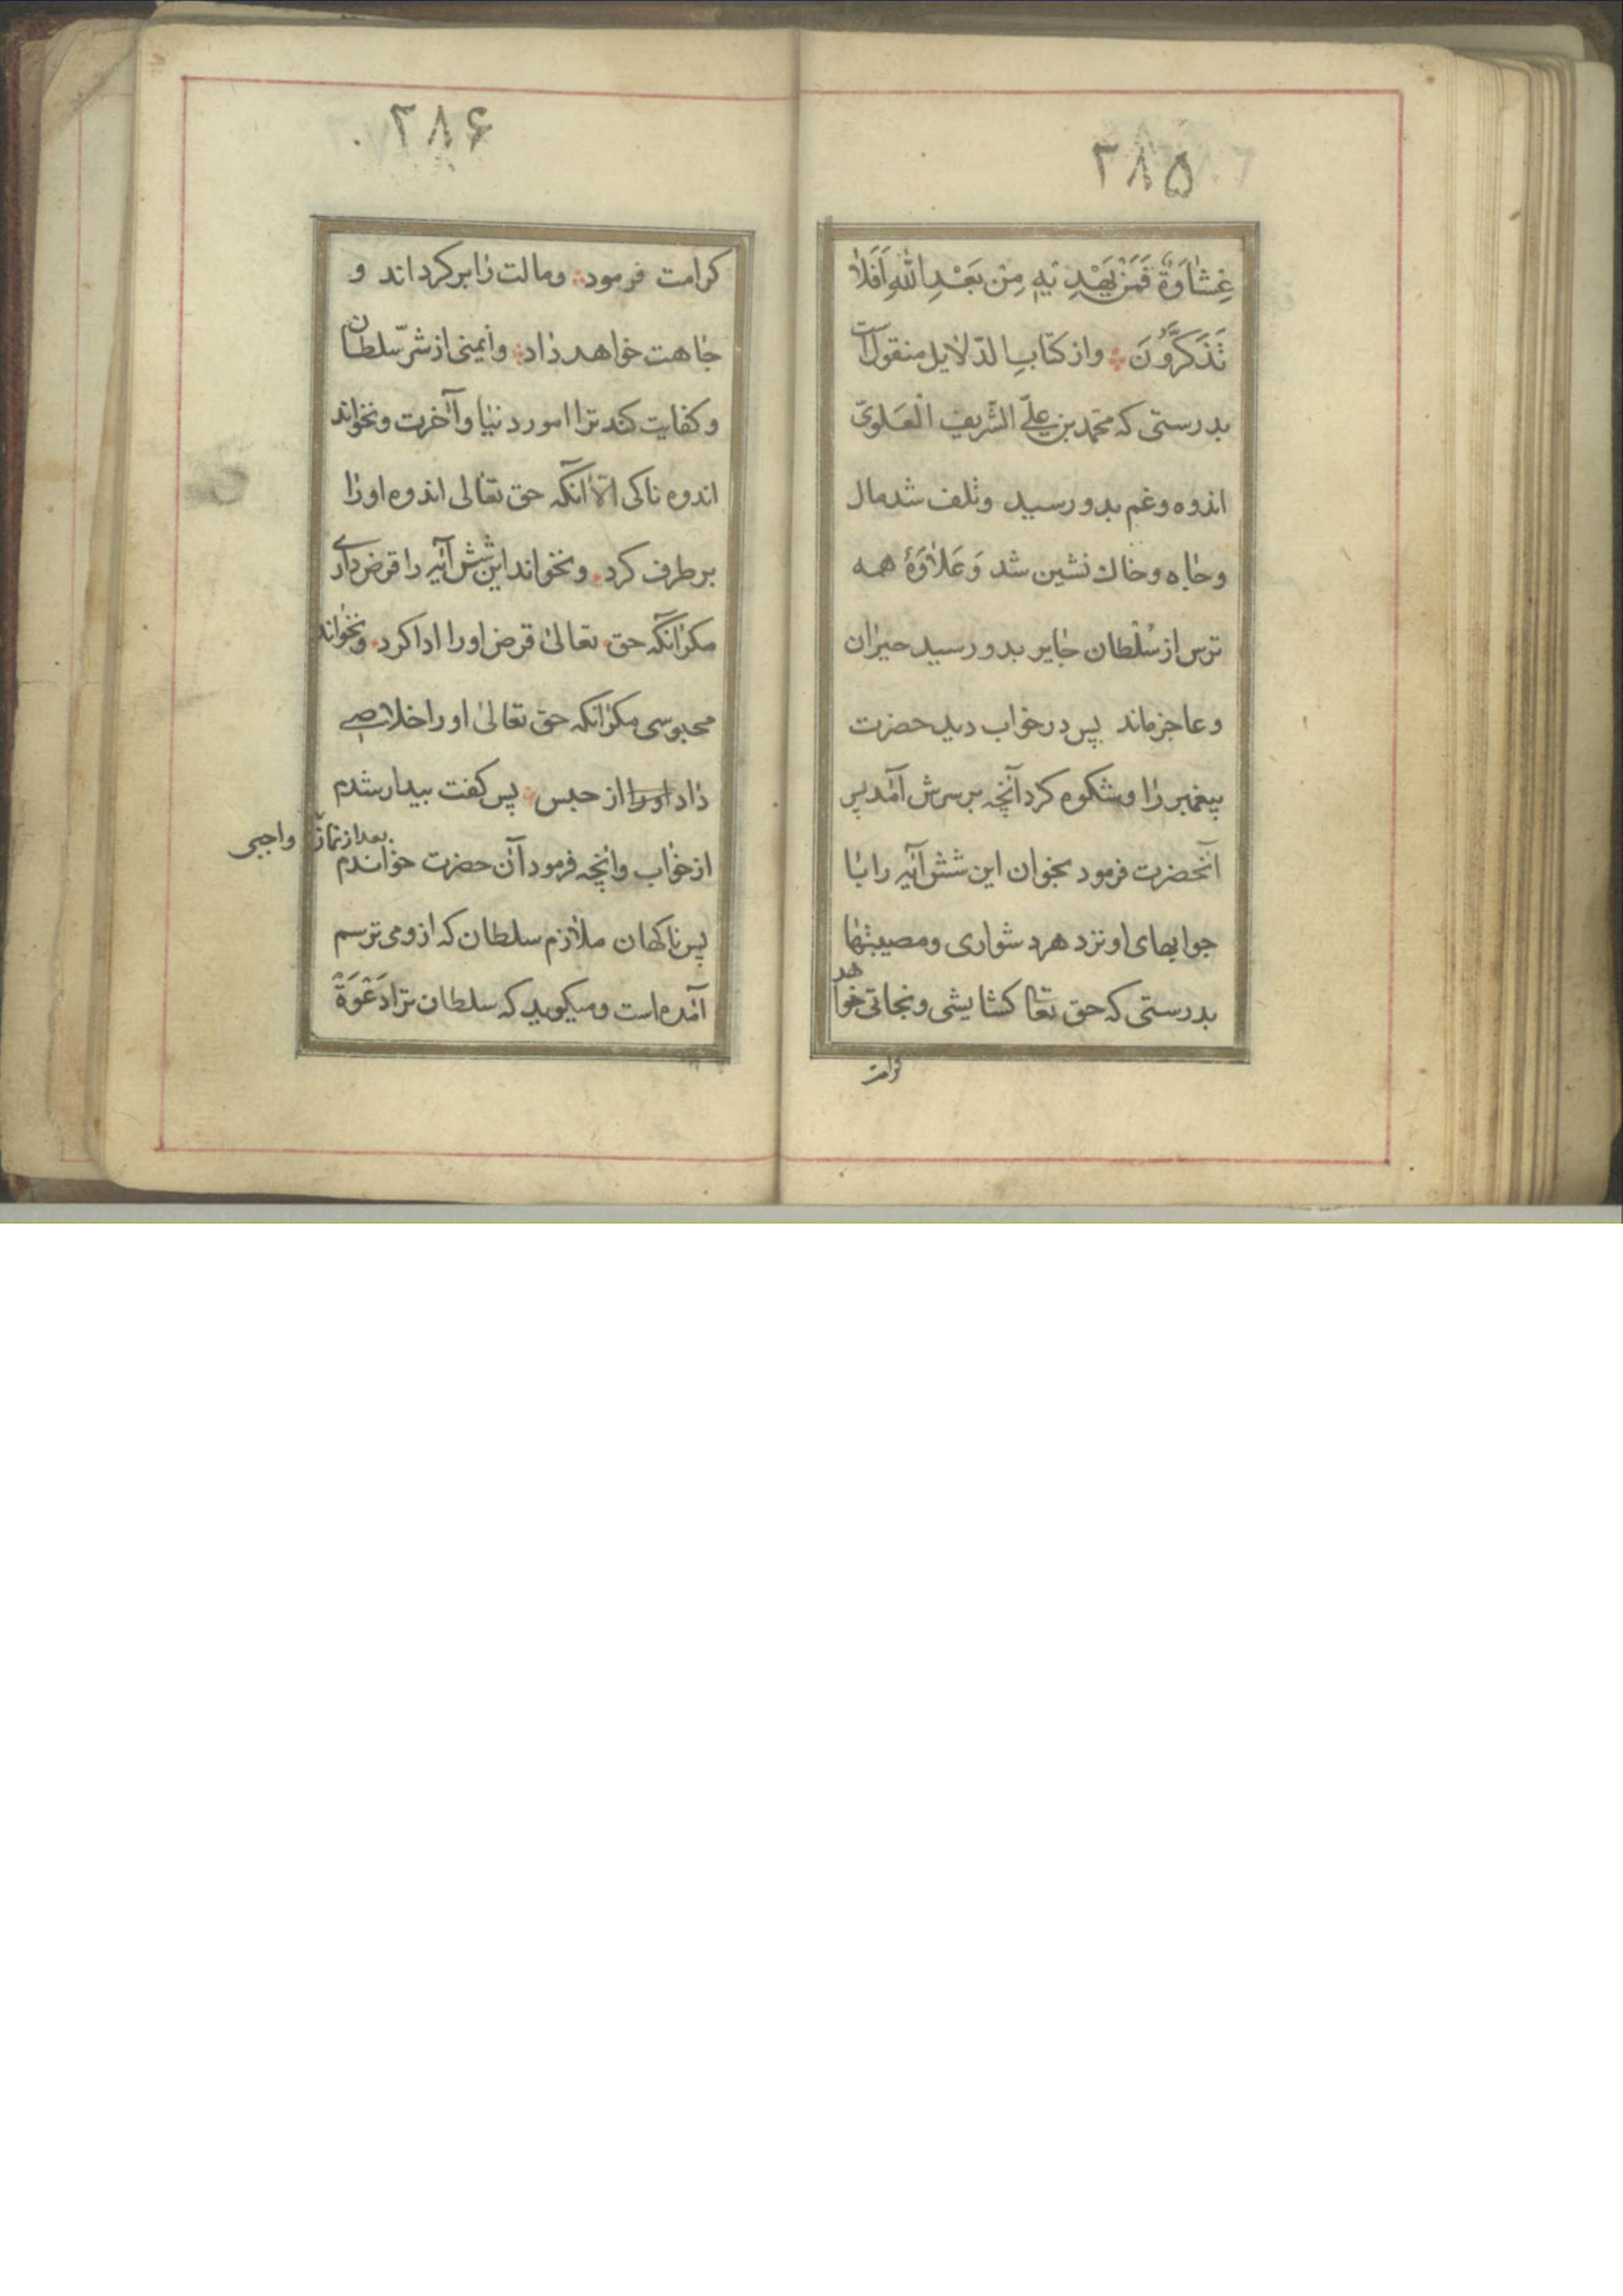 ۲۸۵
غِشَاوَةً فَمَنْ يَهْدِيهِ مِنْ بَعْدِ اللّٰهِ اَفَلَا
تَذَكَّرُونَ وازکتاب الدّلایل منقول است
بدرستی که محمّد بن علیّ الشّریف الْعَلَویّ
اندوه وغم بدو رسید وتلف شد مال
وجاه وخاک نشین شد وَعَلاوَۀ همه
ترس از سُلْطان جایر بدو رسید حیران
وعاجز ماند پس درخواب دید حضرت
پیغمبر را وشکوه کرد آنچه بر سرش آمد پس
آنحضرت فرمود بخوان این شش آیه را با
جوابهای او نزد هر دشواری ومصیبتها
بدرستی که حق تعا کشایشی ونجاتی خواهد
کرامت
۲۸۶
کرامت فرمود ومالت را برکرداند و
جاهت خواهد داد وایمنی از شرّ سلطان
وکفایت کند ترا امور دنیا وآخرت ونخواند
اندوه ناکی الّا آنکه حق تعالی اندوه او را
برطرف کرد ونخواند این شش آیه را قرض داری
مکر آنکه حق تعالی قرض او را ادا کرد ونخواند
محبوسی مکر آنکه حق تعالی او را خلاصی
داد او را از حبس پس کفت بیدار شدم
بعد از نماز واجبی
از خواب وآنچه فرمود آن حضرت خواندم
پس ناکهان ملازم سلطان که از و می ترسم
آمده است ومیکوید که سلطان ترا دَعْوَة